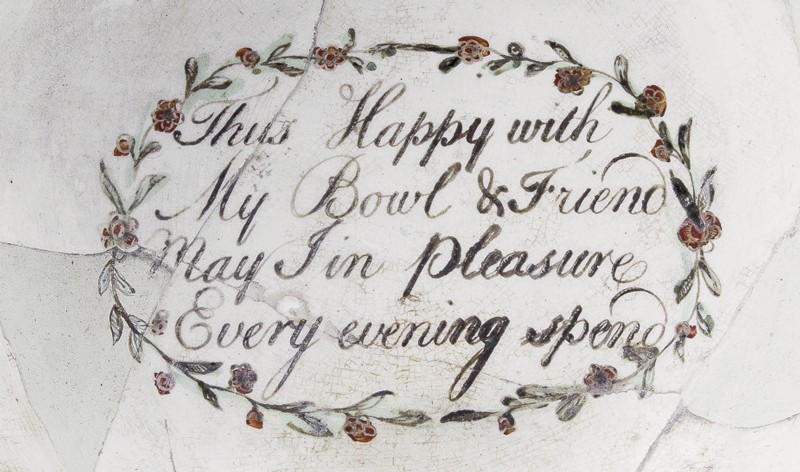 Thus Happy with
My Bowl & Friend
May I in pleasure
Every evening spend